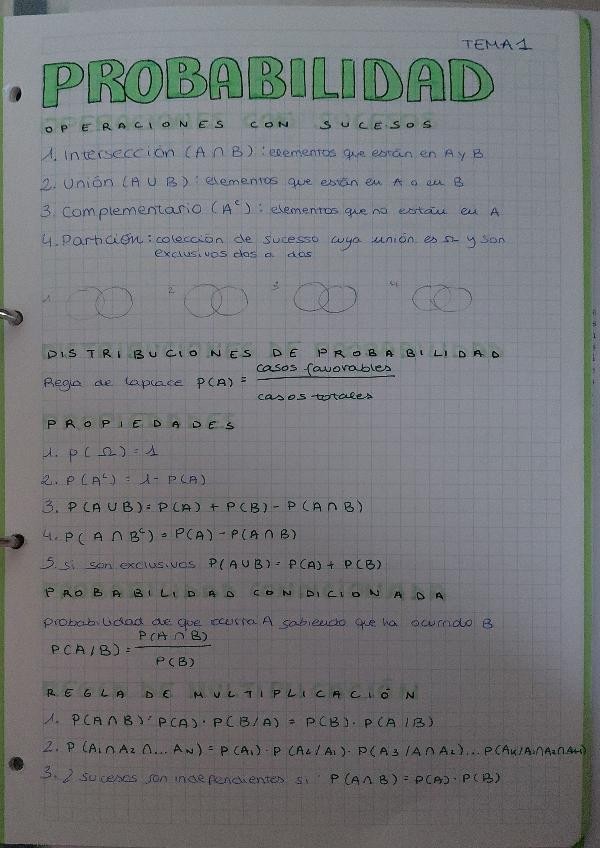 TEMA 1
PROBABILIDAD
OPERACIONES CON SUCESOS
1. Intersección (A ∩ B) : elementos que están en A y B
2. Unión (A ∪ B) : elementos que están en A o en B
3. Complementario (Aᶜ) : elementos que no están en A
4. Partición : colección de suceso cuya unión es Ω y son
exclusivos dos a dos
1 2 3 4
DISTRIBUCIONES DE PROBABILIDAD
Regla de laplace P(A) = casos favorables
casos totales
PROPIEDADES
1. P(Ω) = 1
2. P(Aᶜ) = 1 - P(A)
3. P(A ∪ B) = P(A) + P(B) - P(A ∩ B)
4. P(A ∩ Bᶜ) = P(A) - P(A ∩ B)
5. si son exclusivos P(A ∪ B) = P(A) + P(B)
PROBABILIDAD CONDICIONADA
probabilidad de que ocurra A sabiendo que ha ocurrido B
P(A/B) = P(A ∩ B)
P(B)
REGLA DE MULTIPLICACIÓN
1. P(A ∩ B) = P(A) · P(B/A) = P(B) · P(A/B)
2. P(A₁ ∩ A₂ ∩ ... Aₙ) = P(A₁) · P(A₂/A₁) · P(A₃/A ∩ A₂) ...
3. 2 sucesos son independientes si P(A ∩ B) = P(A) · P(B)